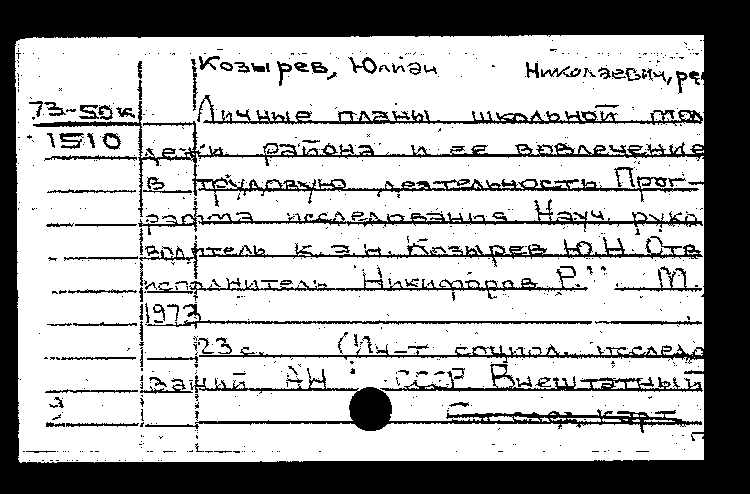 Козырев, Юлиан Николаевич, ре
73-50к
Личные планы школьной мол
1510
дежи района и ее вовлечение
в трудовую деятельность Прог-
рамма исследования Науч. руко
водитель к.э.н. Козырев Ю.Н. Отв
исполнитель Никифоров Р." М.
1973
23 с. (Ин-т социол. исследо
ваний АН СССР Внештатный
См. след. карт.